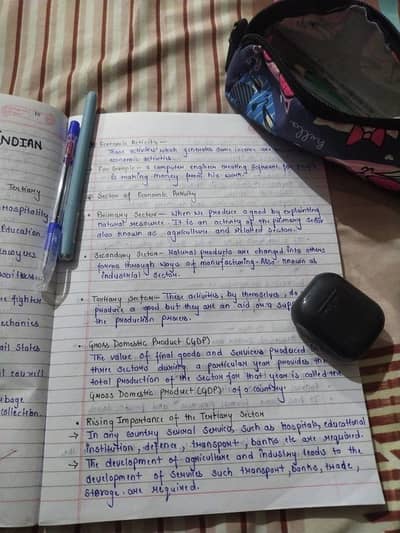 INDIAN
Tertiary
Hospitality
Education
Lawyers
fighter
mechanics
ail States
council
collection.
Economic Activity —
Those activities which generates some income are
economic activities.
For Example — a computer engineer creating software for
is making money from his work.
Sector of Economic Activity
• Primary Sector — When we produce a good by exploiting
natural resource. It is an activity of the primary sector
also known as agriculture and related sector.
• Secondary Sector — Natural products are changed into others
forms through ways of manufacturing. Also known as
industrial sector.
• Tertiary Sector — These activities, by themselves, do
produce a good but they are an aid or a
the production process.
• Gross Domestic Product (GDP)
The value of final goods and services produced
three sectors during a particular year provides the
total production of the sector for that year is called the
Gross Domestic Product (GDP) of a country.
• Rising Importance of the Tertiary Sector
→ In any country several services, such as hospitals, educational
institution, defence, transport, banks etc are required.
→ The development of agriculture and industry leads to the
development of services such transport, banks, trade,
storage are required.